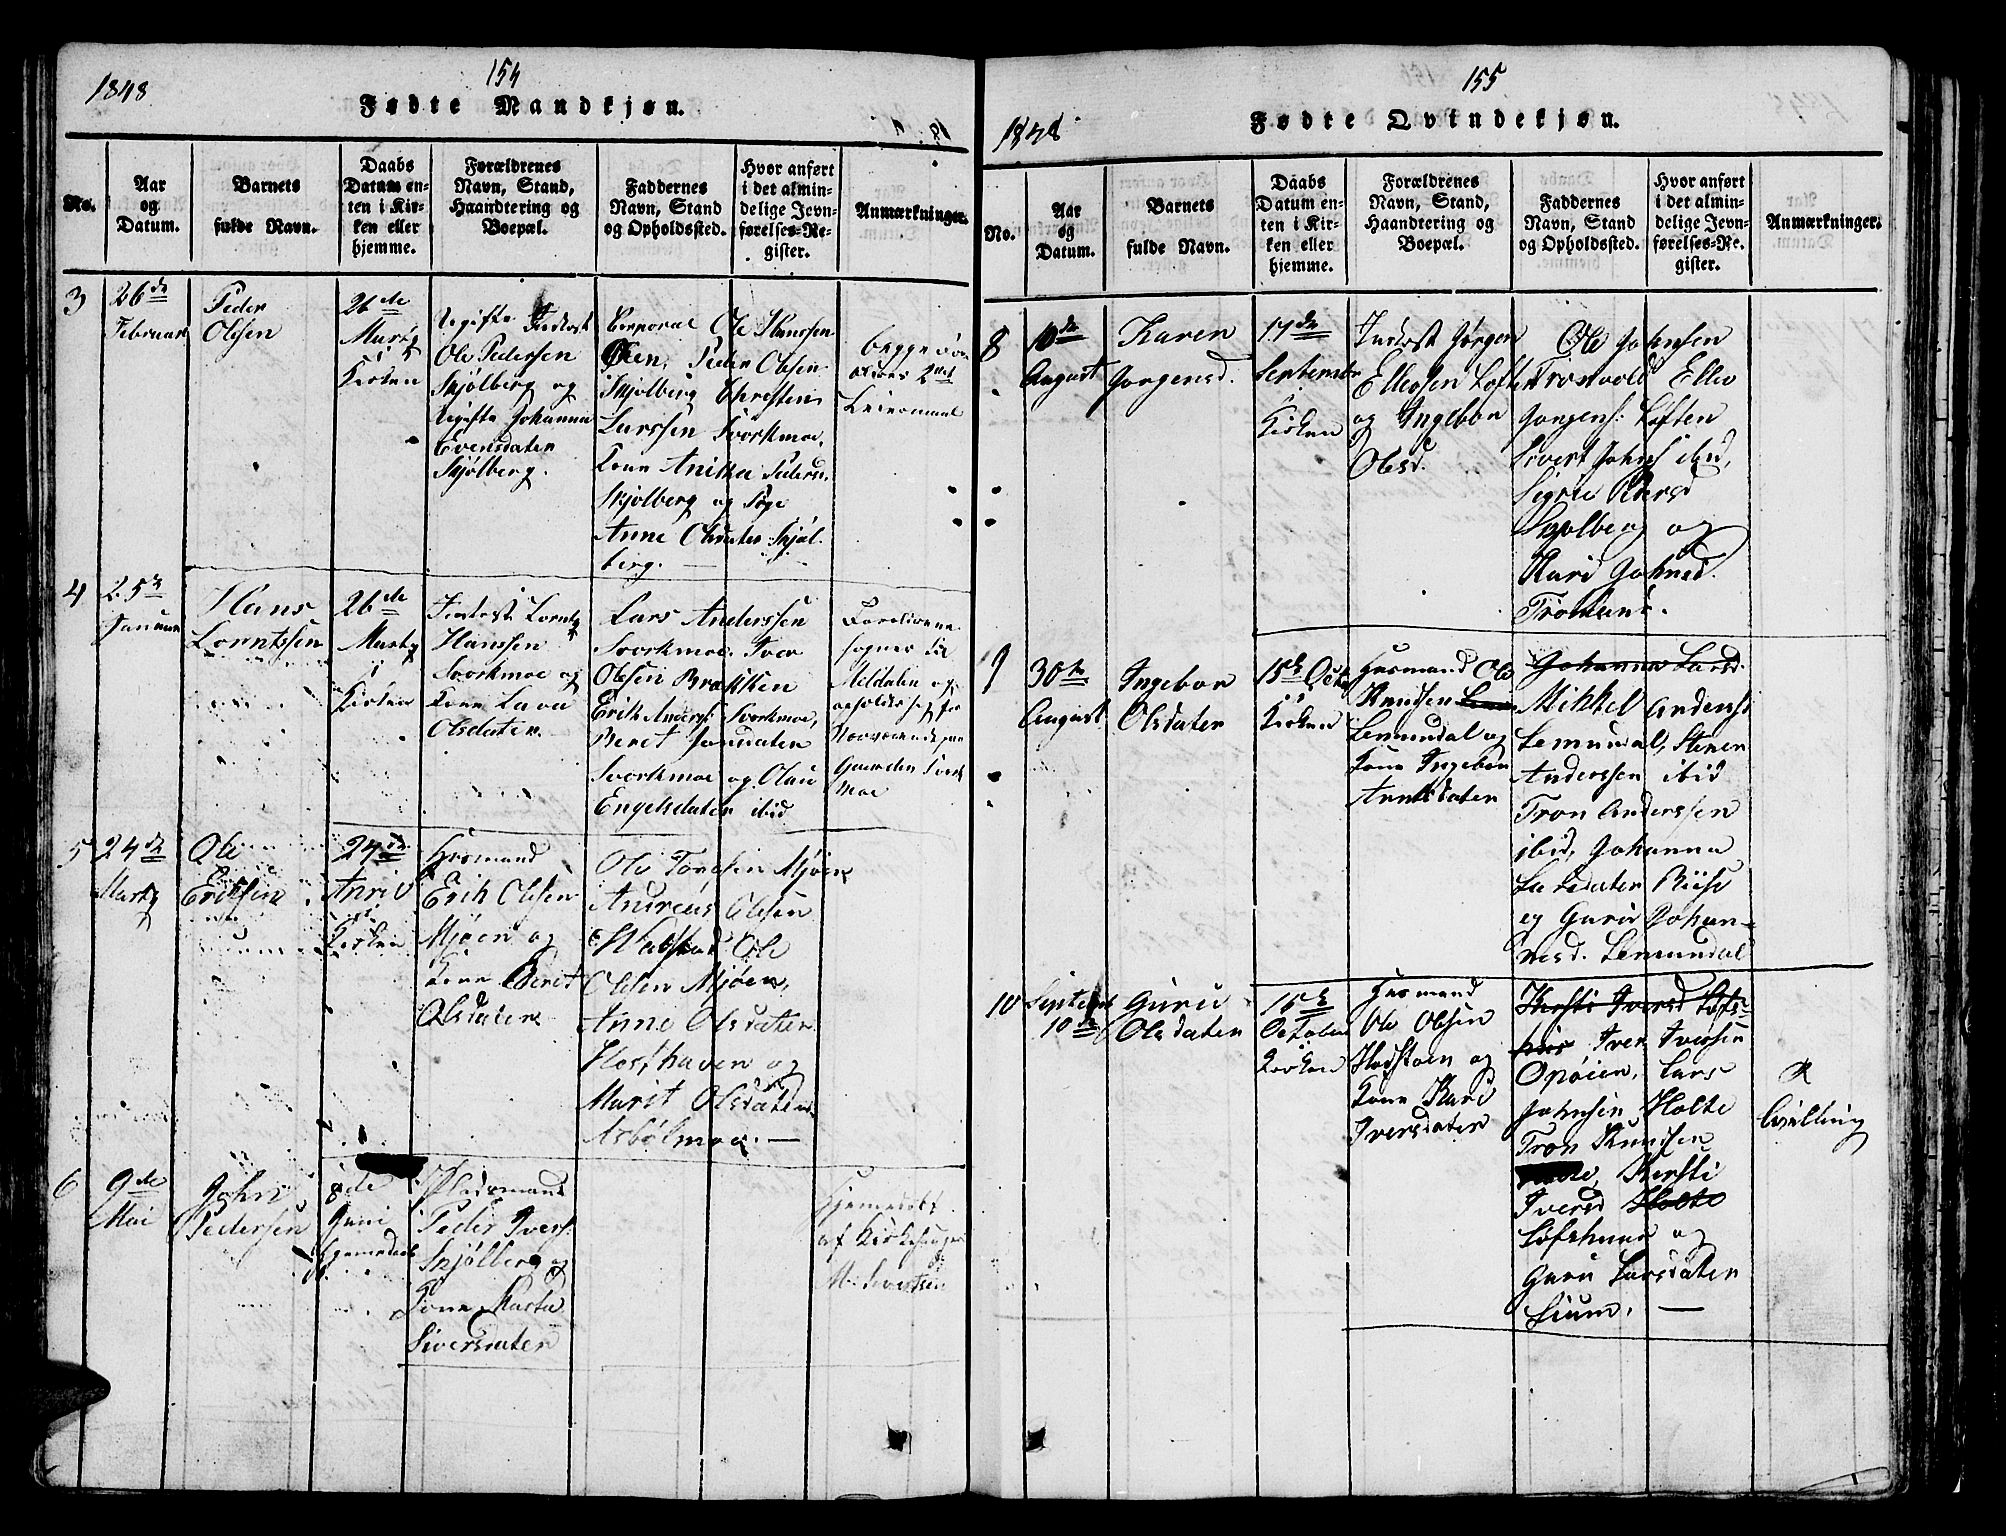 1848
154
Fødte Mandkjøn.
No.
Aar
og
Datum.
Barnets
fulde Navn.
Daabs
Datum en-
ten i Kir-
ken eller
hjemme.
Forældrenes
Navn, Stand,
Haandtering og
Boepæl.
Faddernes
Navn, Stand
og Opholdssted.
Hvor anført
i det almin-
delige Jevn-
førelses-Re-
gister.
Anmærkninger.
3
26de
Februar
Peder
Olesen
26de
Marts
i
Kirken
Ole Pedersen
Skjølberg og
Johanna
Evensdatter
Skjølberg.
Corporal Ole Hanssen
Øien, Peder Olsen
Skjølberg Christen
Larssen Svorkmoe,
Kone Anika Pedersd.
Skjølberg og Pige
Anne Olsdatter Skjøl-
berg.
begge
2det
Leiermaal
4
25de
Januar
Hans
Lorntssen
26de
Marts
i
Kirken
Inderst Lornts
Hanssen
Svorkmoe og
Kone Lava
Olsdatter.
Lars Anderssen
Svorkmoe. Iver
Olsen Brækken
Erik Anders: Svorkmoe,
Beret Jonsdatter
Svorkmoe og Olau
Engelsdatter ibid
Forældrene
sogner til
Meldalen og
opholder sig for
Nærværende paa
Gaarden Svork
moe
5
24de
Marts
Ole
Eriksen
24de
April
i
Kirken
Husmand
Erik Olsen
Mjøen og
Kone Beret
Olsdatter
Ole Toresen Mjøen
Andreas Olsen
Walstad Ole
Olsen Mjøen,
Anne Olsdatter
Hosthaven og
Marit Olsdatter
Asbølmoe. —
6
9de
Mai
John
Pedersen
8de
Juni
hjemmedøbt
Pladsmand
Peder Ivers:
Skjølberg og
Kone Marta
Siversdatter
Hjemmedøbt
af Kirkesanger
M. Sivertsen
1848
155
Fødte Qvindekjøn.
No.
Aar
og
Datum.
Barnets
fulde Navn.
Daabs
Datum en-
ten i Kir-
ken eller
hjemme.
Forældrenes
Navn, Stand,
Haandtering og
Boepæl.
Faddernes
Navn, Stand
og Opholdssted.
Hvor anført
i det almin-
delige Jevn-
førelses-Re-
gister.
Anmærkninger.
8
10de
August
Karen
Jørgensd.
17de
September
Kirken
Inderst Jørgen
Ellevsen Loften
og Ingebor
Olesd.
Ole Johnsen
Tronvold Ellev
Jørgens: Loften
Sivert Johns ibid,
Sigrie
Skjølberg og
Kari Johnsd.
9
30te
August
Ingebor
Olsdatter
15de Octb
i
Kirken
Husmand Ole
Knudsen
Lemundal og
Kone Ingebor
Arntsdatter
Johanna Larsd.
Mikkel Anderss
Lemundal, Stener
Anderssen ibid
Tron Anderssen
ibid, Johanna
Larsdatter Riise
og Guru Johan-
nesd. Lemundal
10
Septemb
10de
Guru
Olsdatter
15de
October
i
Kirken
Husmand
Ole Olsen
Hadstøen og
Kone Kari
Iversdatter
Kersti Iversd Lofs-
huus Iver Iversen
Opøien, Lars
Johnsen Holte
Tron Knudsen
Kersti
Iversd Holte
Lofshuus og
Guru Larsdatter
Lium. —
Tvilling